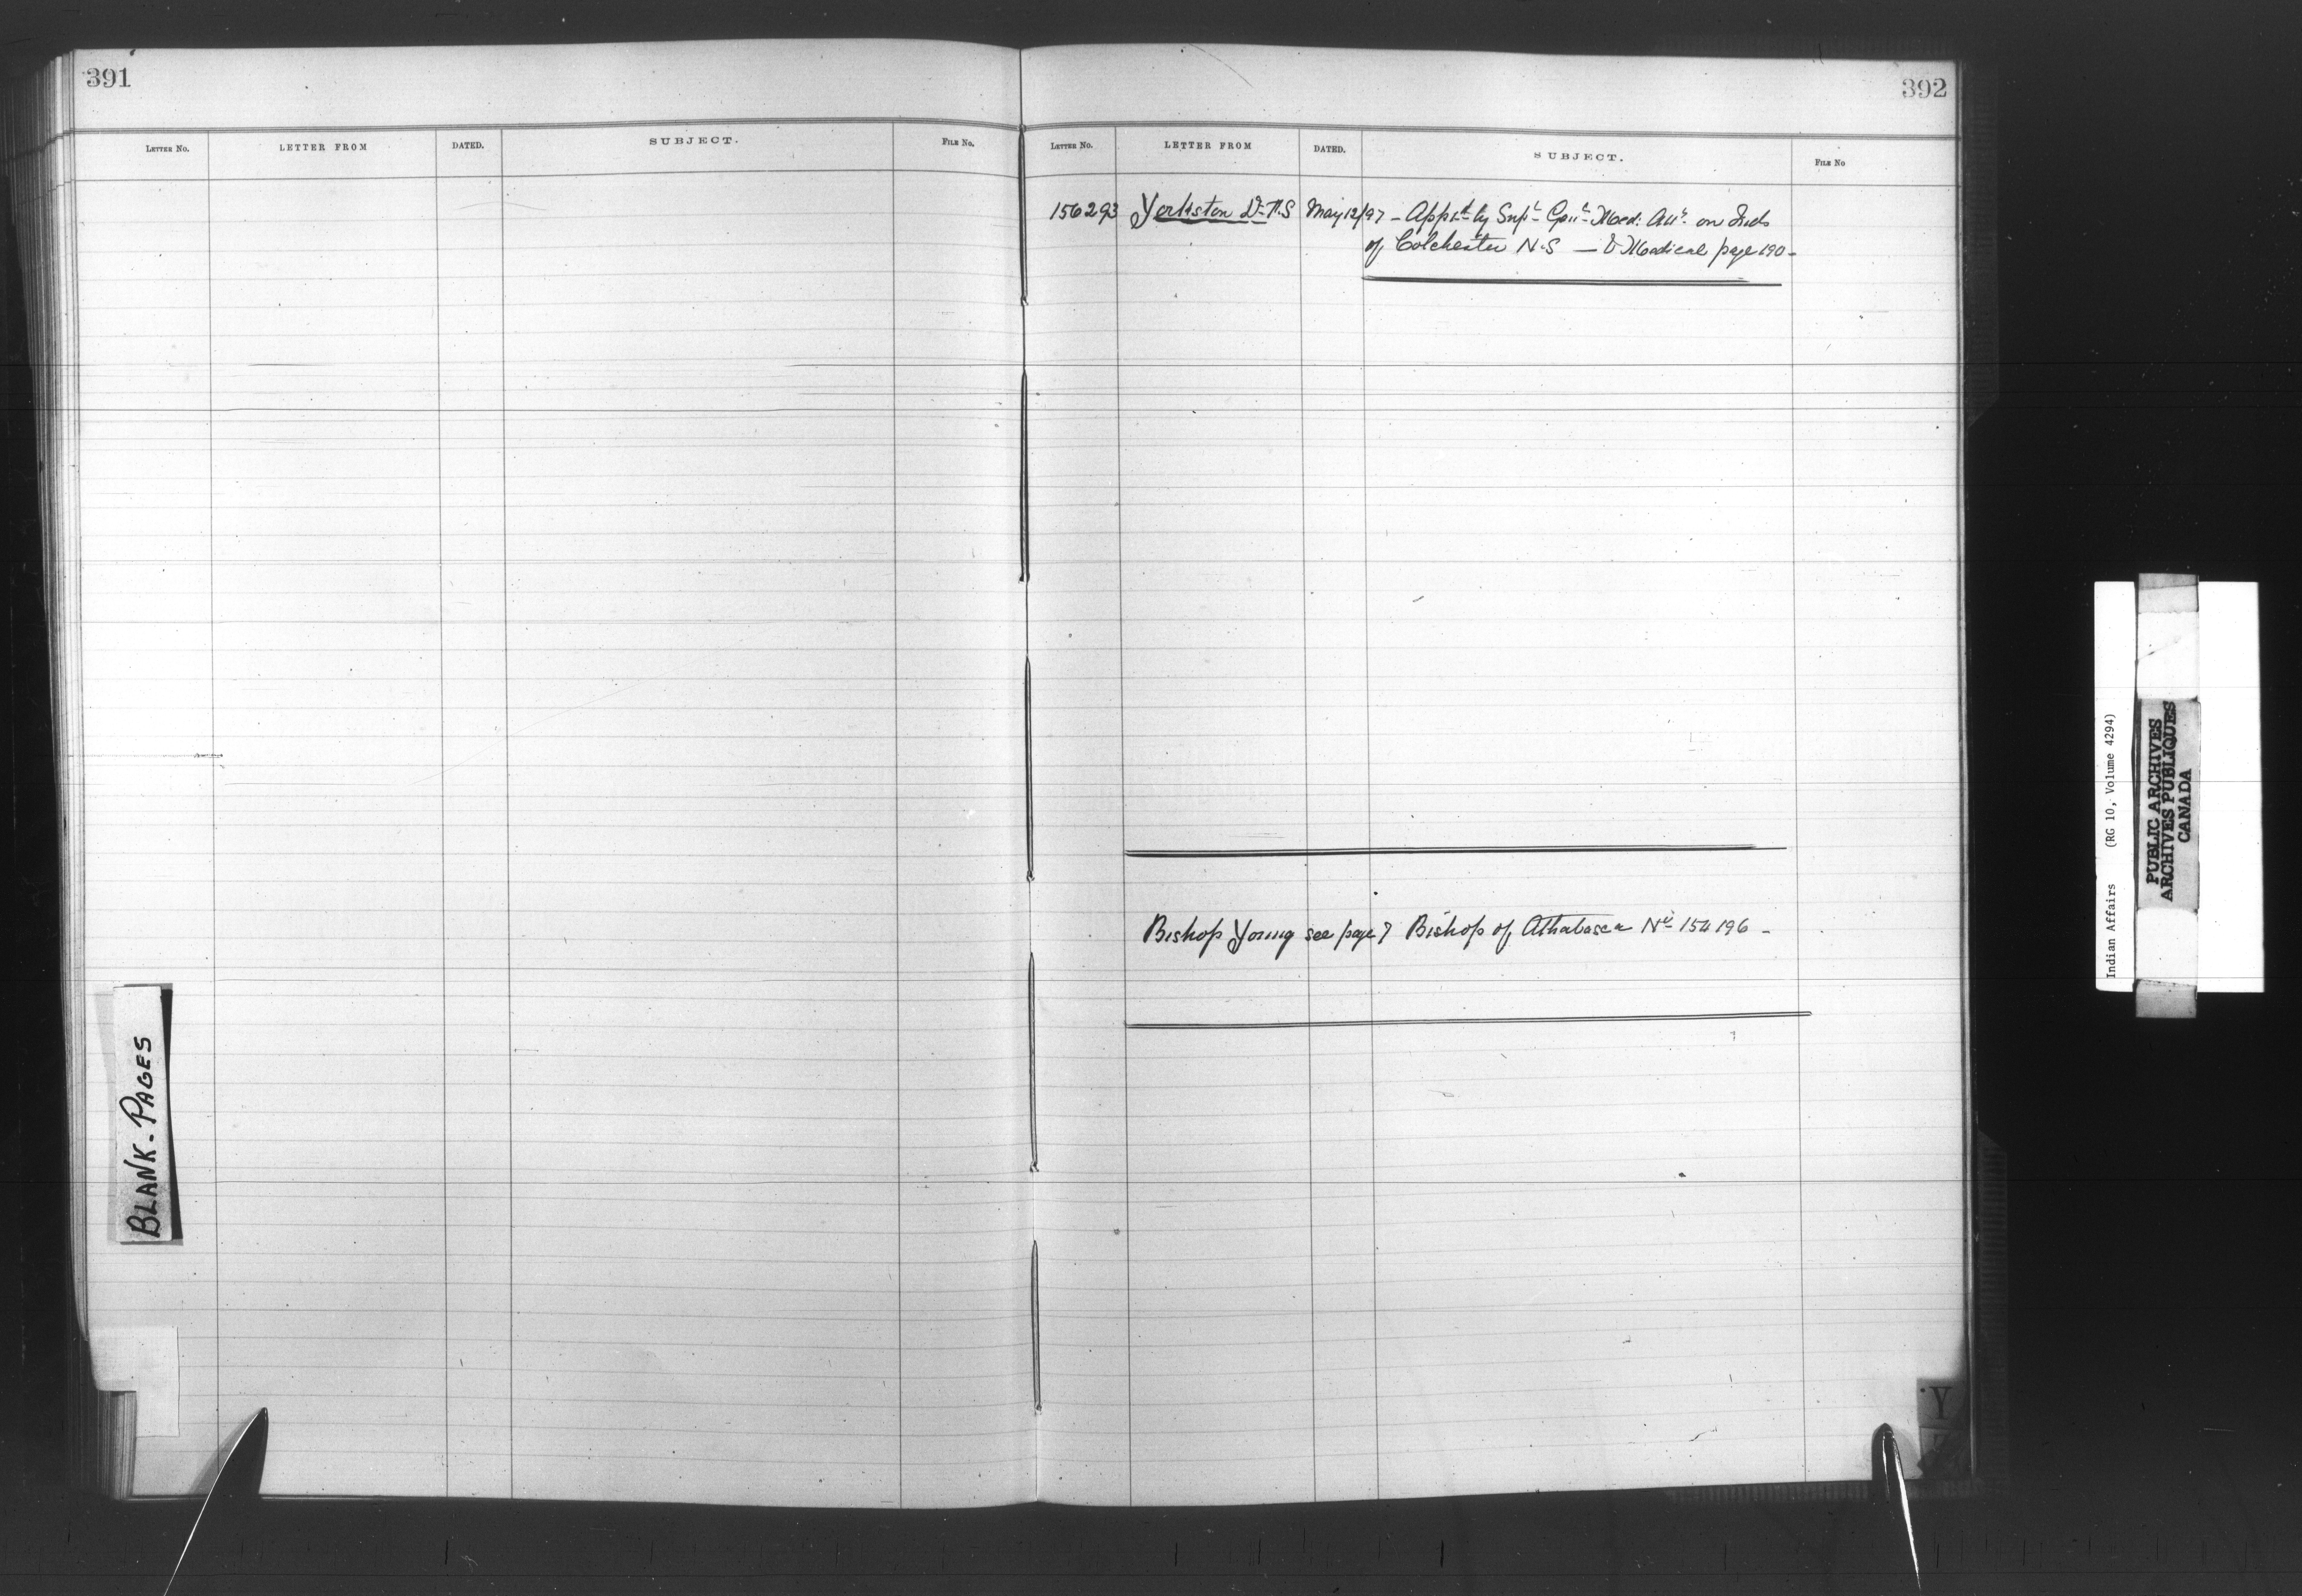 391
LETTER NO. LETTER FROM DATED. SUBJECT. FILE NO.
BLANK-PAGES
392
LETTER NO. LETTER FROM DATED. SUBJECT. FILE No
156293 Yorkston Dr. May 12/97 - App'd by Sup't Gen'l Med: on Inds
of Colchester N.S — V Medical page 190 -
Bishop Young see page 7 Bishop of Athabasca No 154196 -
Y
Indian Affairs (RG 10, Volume 4294)
PUBLIC ARCHIVES
ARCHIVES PUBLIQUES
CANADA